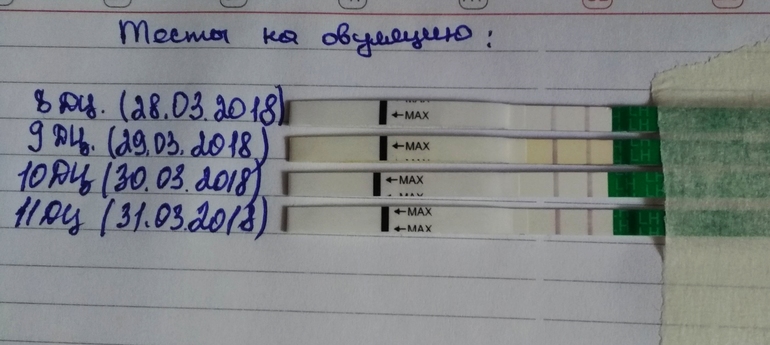 Тесты на овуляцию:
8 ДЦ. (28.03.2018) ←MAX
9 ДЦ. (29.03.2018) ←MAX
10 ДЦ (30.03.2018) ←MAX
11 ДЦ (31.03.2018) ←MAX
←MAX